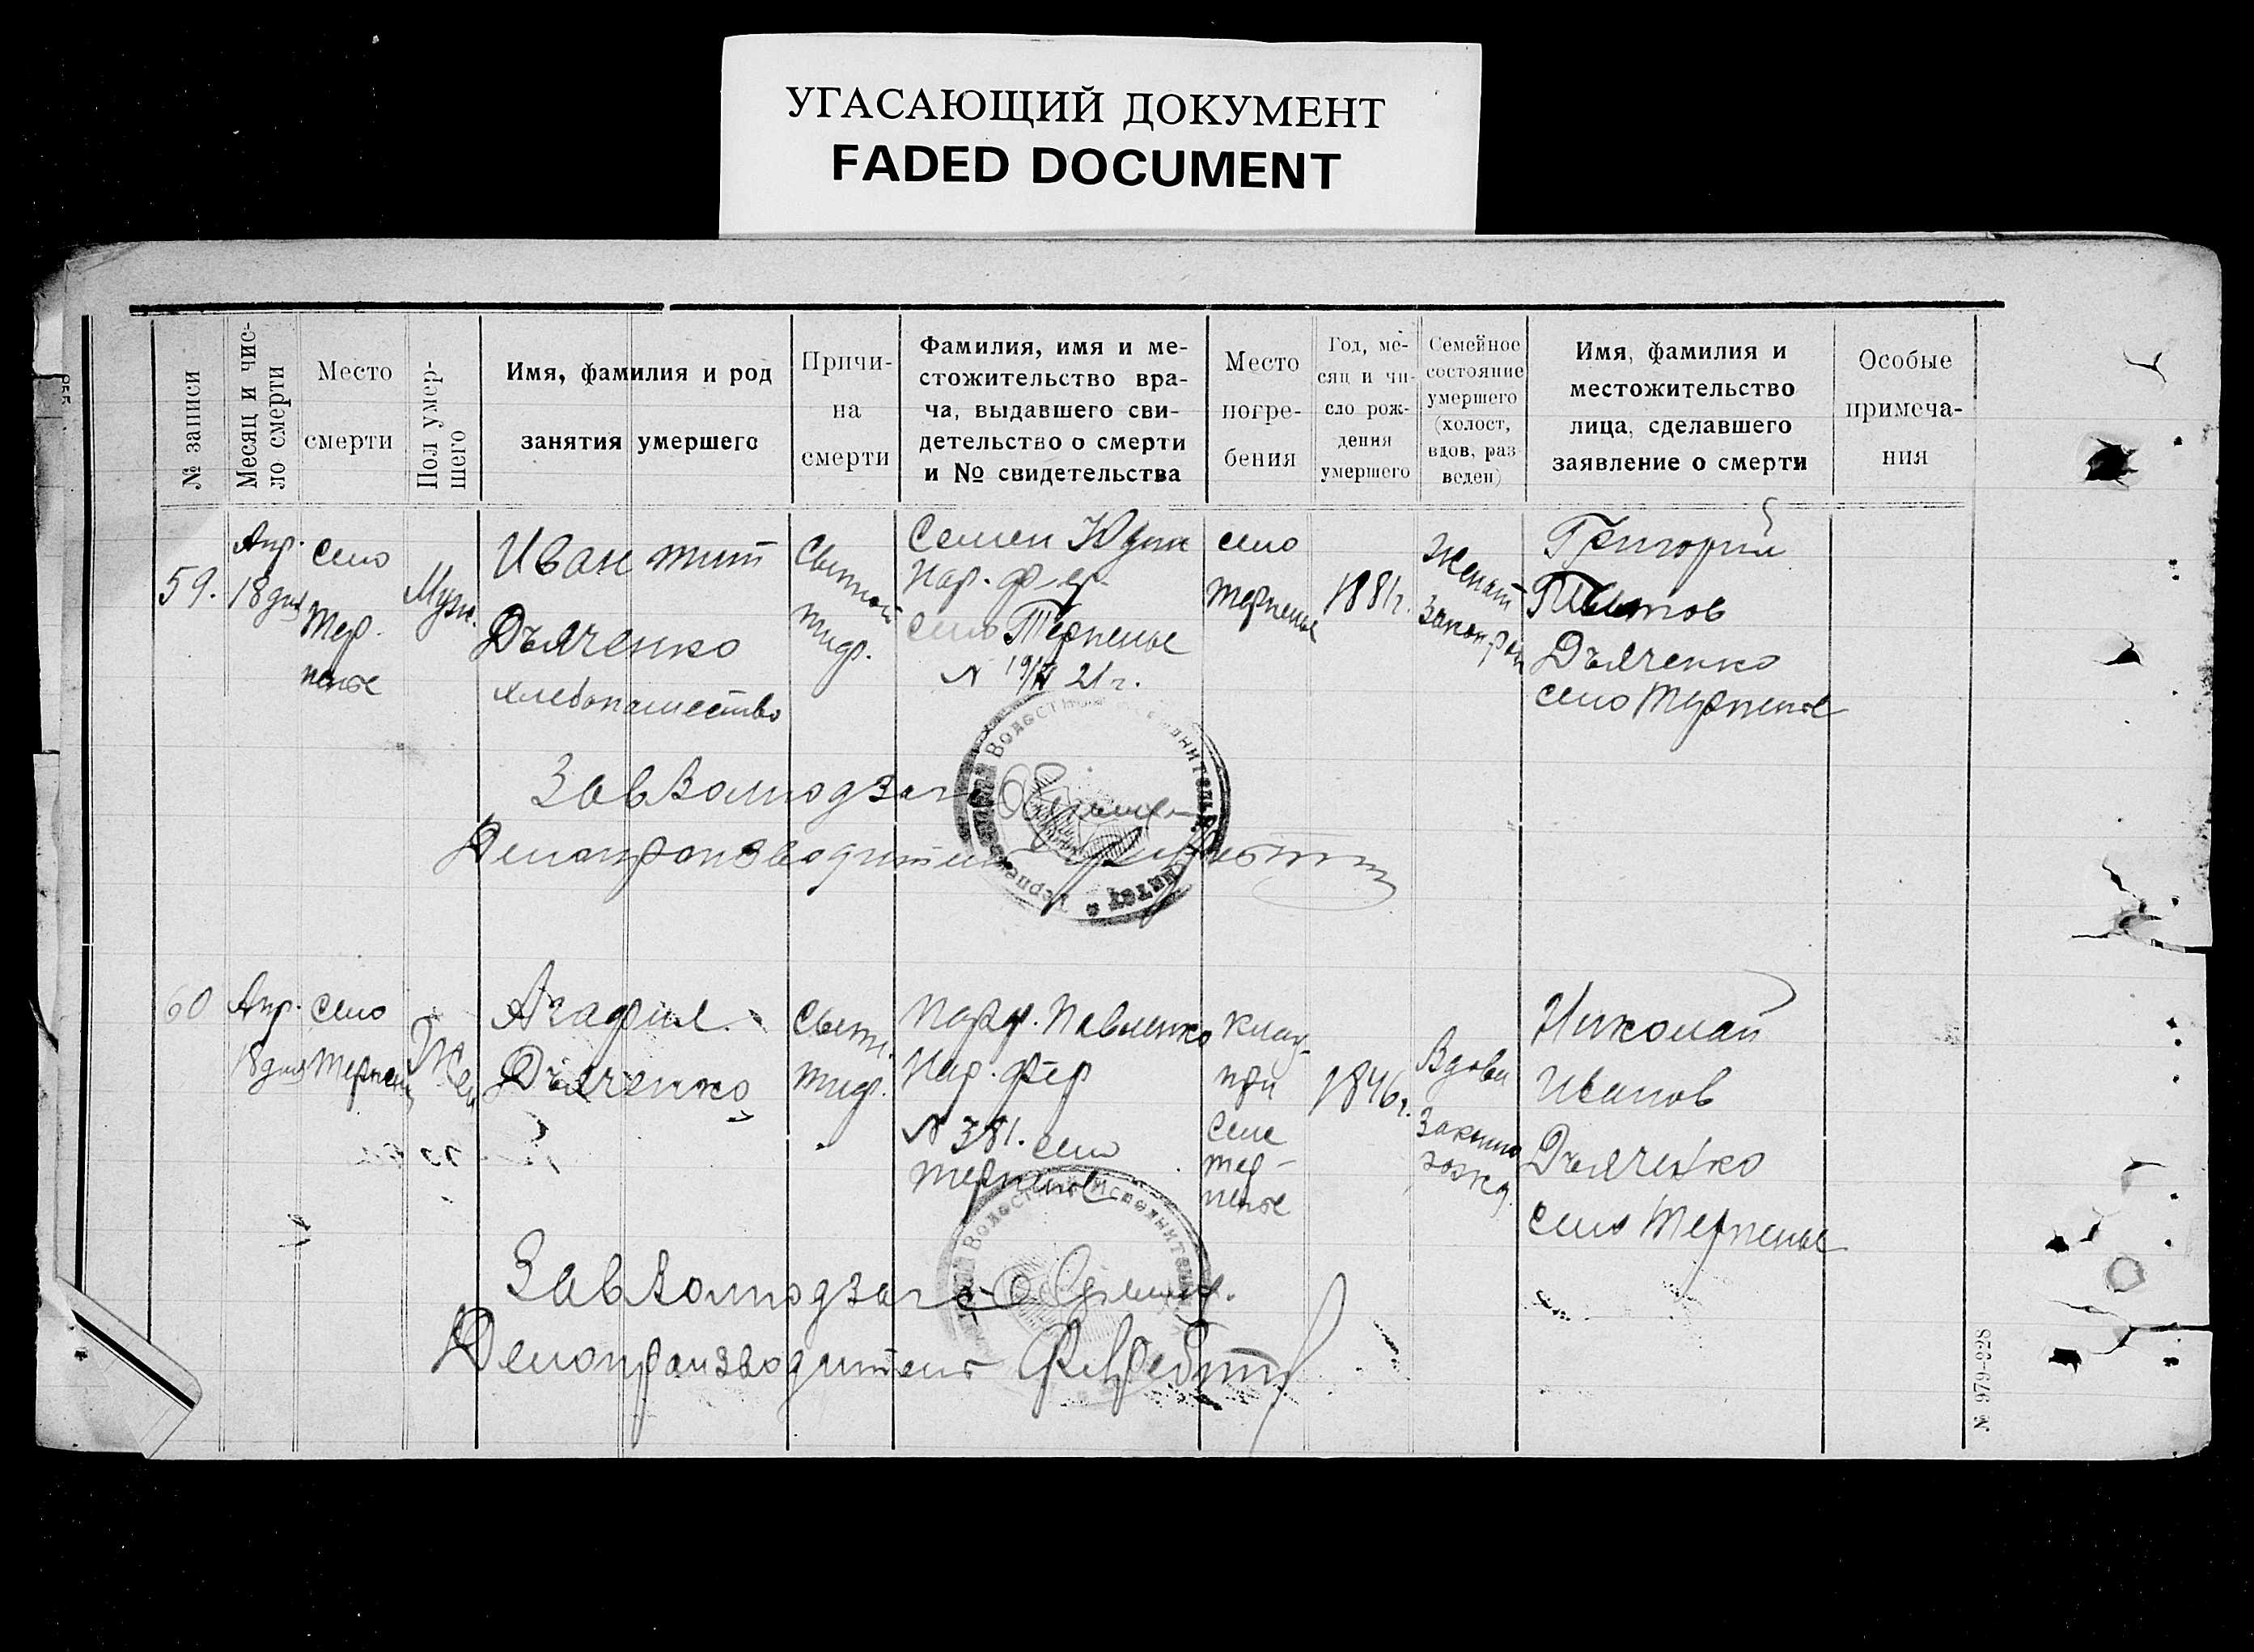 УГАСАЮЩИЙ ДОКУМЕНТ
FADED DOCUMENT
№ записи
Месяц и чис-
ло смерти
Место
смерти
Пол умер-
шего
Имя, фамилия и род
занятия умершего
Причи-
на
смерти
Фамилия, имя и ме-
стожительство вра-
ча, выдавшего сви-
детельство о смерти
и № свидетельства
Место
погре-
бения
Год, ме-
сяц и чи-
сло рож-
дения
умершего
Семейное
состояние
умершего
(холост,
вдов, раз
веден)
Имя, фамилия и
местожительство
лица, сделавшего
заявление о смерти
Особые
примеча-
ния
59.
Апр.
18 дня
село
Тер.
пенье
Муж.
Иван Тит
Дьяченко
хлебопашество
Сыпной
тиф.
Семен Юдин
Нар. фер.
село Терпенье
N 19/IV 21 г.
село
Терпенье
1881 г.
Женат
Григорий
Титов
Дьяченко
село Терпенье
ЗавВолподзаг
Делопроизводитель
60
Апр.
18 дня
село
Терпен
Жен
Агафия
Дьяченко
Сыпн.
тиф.
Парф. Павленко
Нар. фер
N 381. село
Терпенье
Клад.
при
селе
Тер-
пенье
1846 г.
Вдова
Николай
Иванов
Дьяченко
село Терпенье
ЗавВолподзаг
Делопроизводитель
№ 979-928